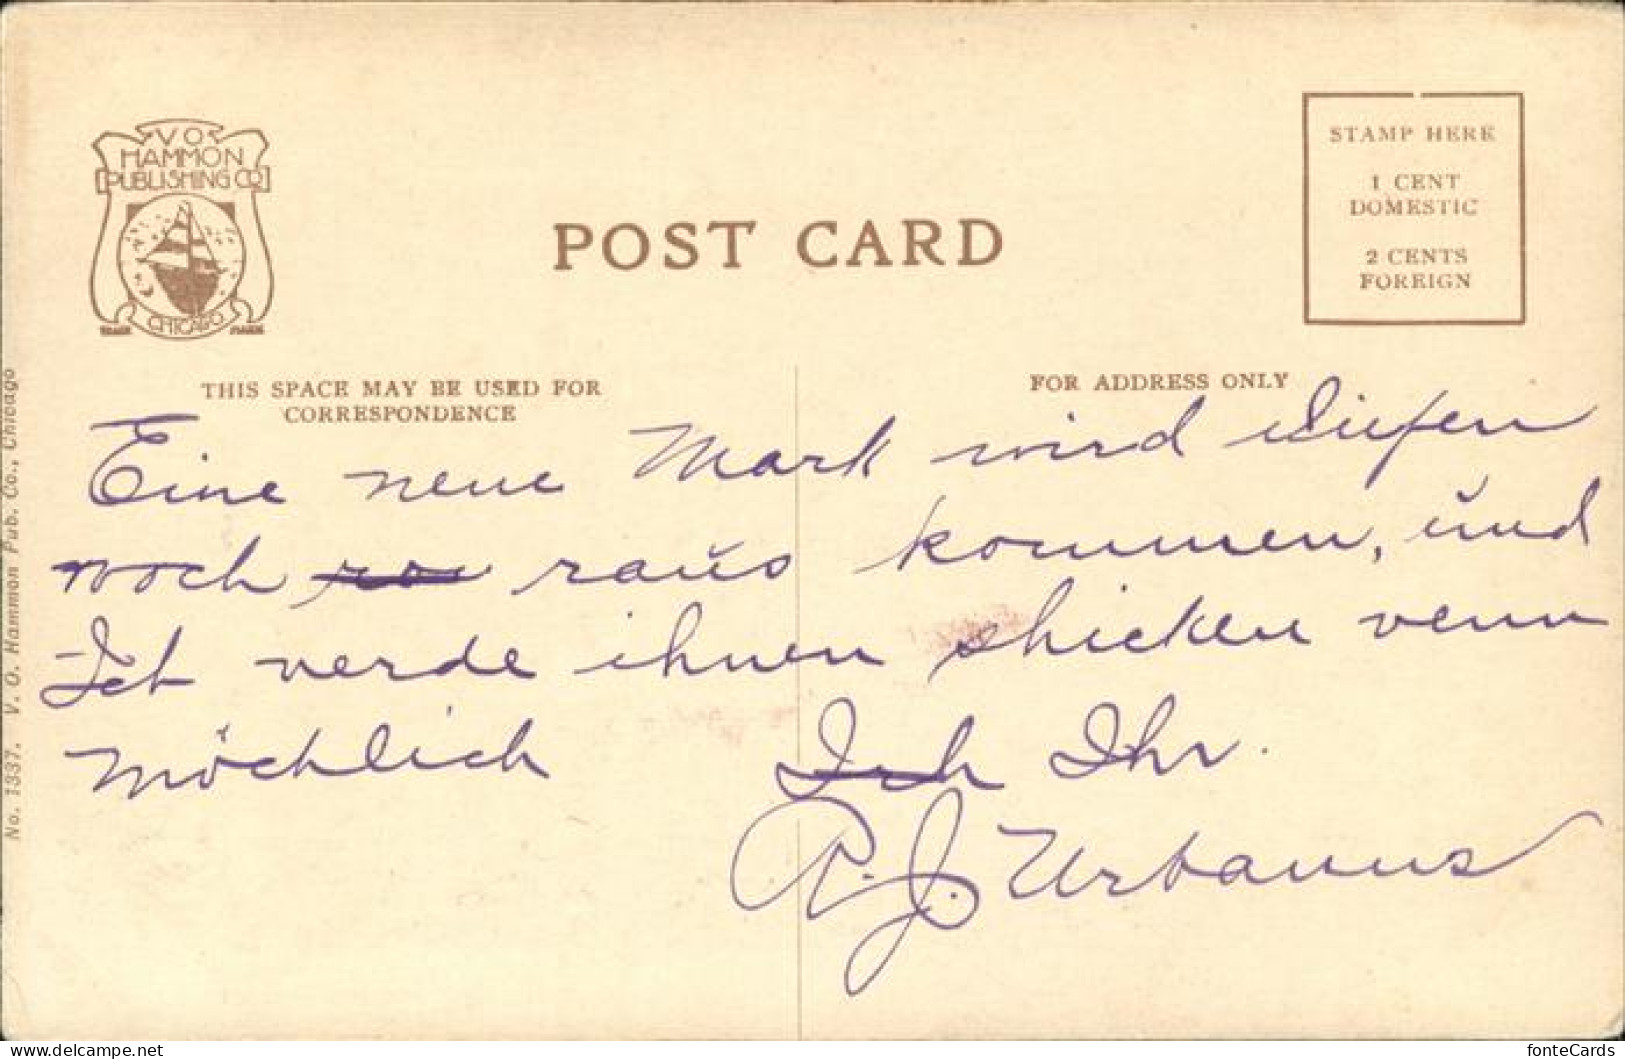 V. O.
HAMMON
PUBLISHING CO
CHICAGO
TRADE MARK
POST CARD
STAMP HERE
1 CENT
DOMESTIC
2 CENTS
FOREIGN
THIS SPACE MAY BE USED FOR
CORRESPONDENCE
FOR ADDRESS ONLY
No. 1337. V. O. Hammon Pub. Co., Chicago
Eine neue Mark wird diefen
noch raus kommen, und
Ich verde ihnen shicken venn
möchlich Ich Ihr.
A. J. Urbanus
fonteCards
https://www.delcampe.net